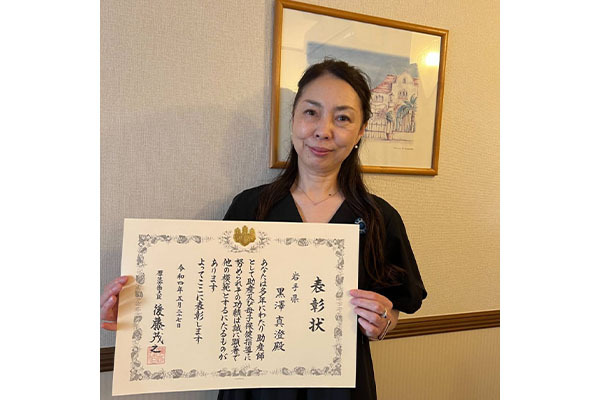 表彰状
岩手県
黒澤真澄殿
あなたは多年にわたり助産師
として助産及び母子保健指導に
努められその功績は誠に顕著で
他の模範とするにたるものが
あります
よってここに表彰します
令和四年五月二十七日
厚生労働大臣
後藤茂之